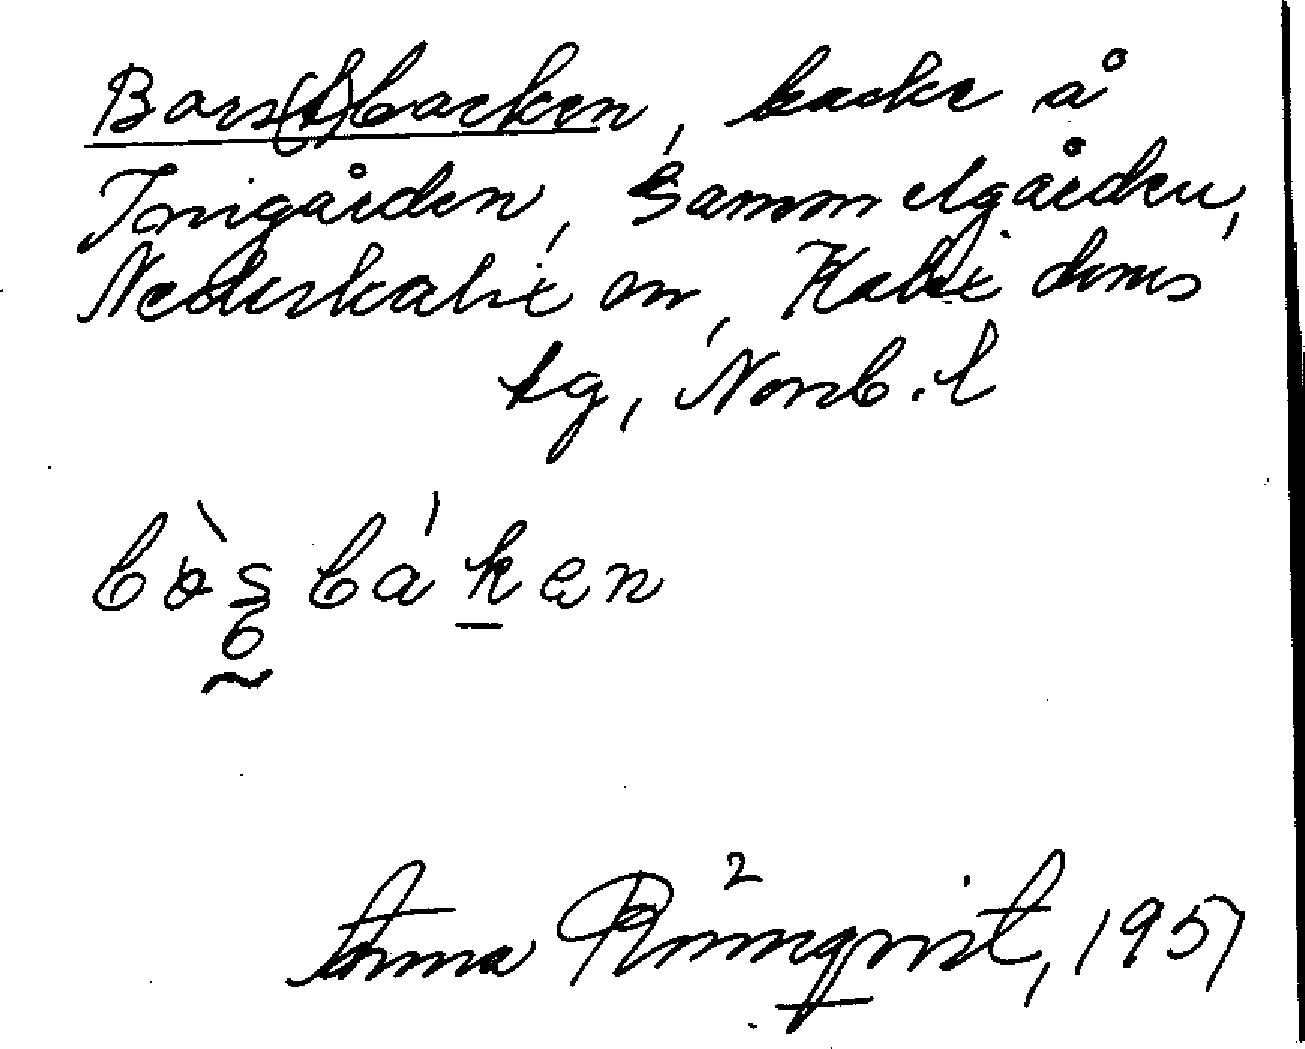 Bars(t)backen, backe å
Tonigården, Gammelgården,
Nederkalix sn, Kalix doms
tg, Norrb. l
Anna Rönnqvist, 1951